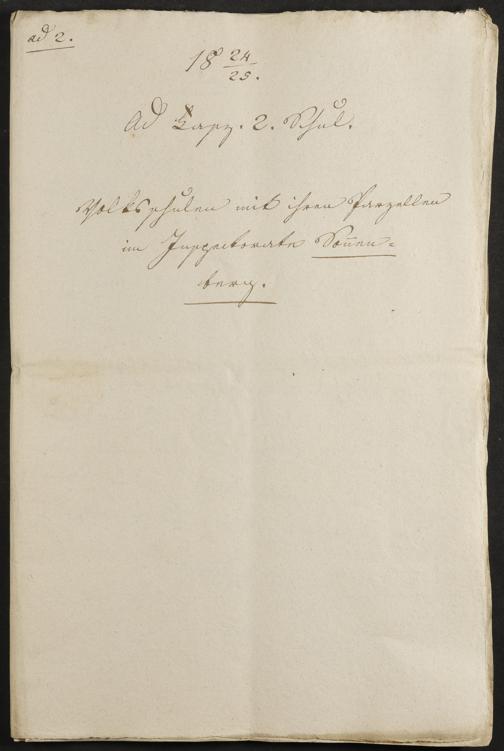 ad 2.
18 24/25.
Ad Kapz. 2. Schul.
Volksschulen mit ihren Parzellen
im Inspectorate Sonnen=
berg.